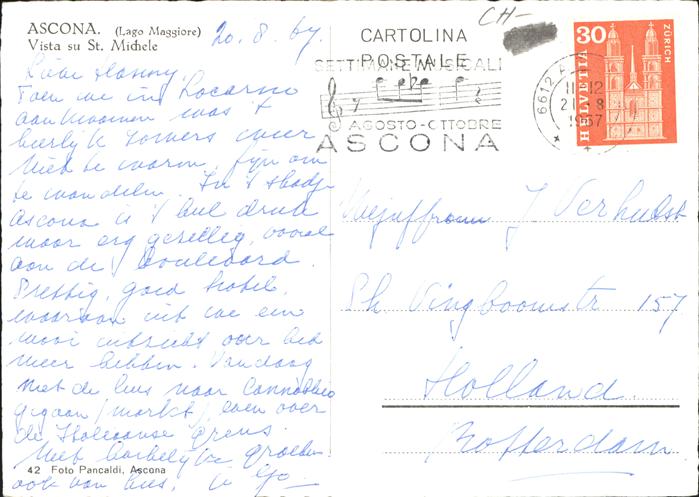 ASCONA. (Lago Maggiore)
Vista su St. Michele
20.8.67.
Lieve Hanny,
Toen we in Locarno
aankwamen was 't
heerlijk zomers weer
niet te warm, fijn om
te wandelen. In 't stadje
Ascona is 't heel druk
maar erg gezellig, vooral
aan de boulevard.
Prettig, goed hotel,
waaruit we een
mooi uitzicht over het
meer hebben. Vandaag
met de bus naar Cannobbio
gegaan (markt) even over
de Italiaanse grens.
Met hartelijke groeten
ook van
42 Foto Pancaldi, Ascona
CH-
CARTOLINA
POSTALE
SETTIMANE MUSICALI
AGOSTO-OTTOBRE
ASCONA
6612
11-12
21-8
1967
30
HELVETIA
ZÜRICH
Mejuffrouw J Verhulst
Ph Vingboomstr 157
Holland.
Rotterdam